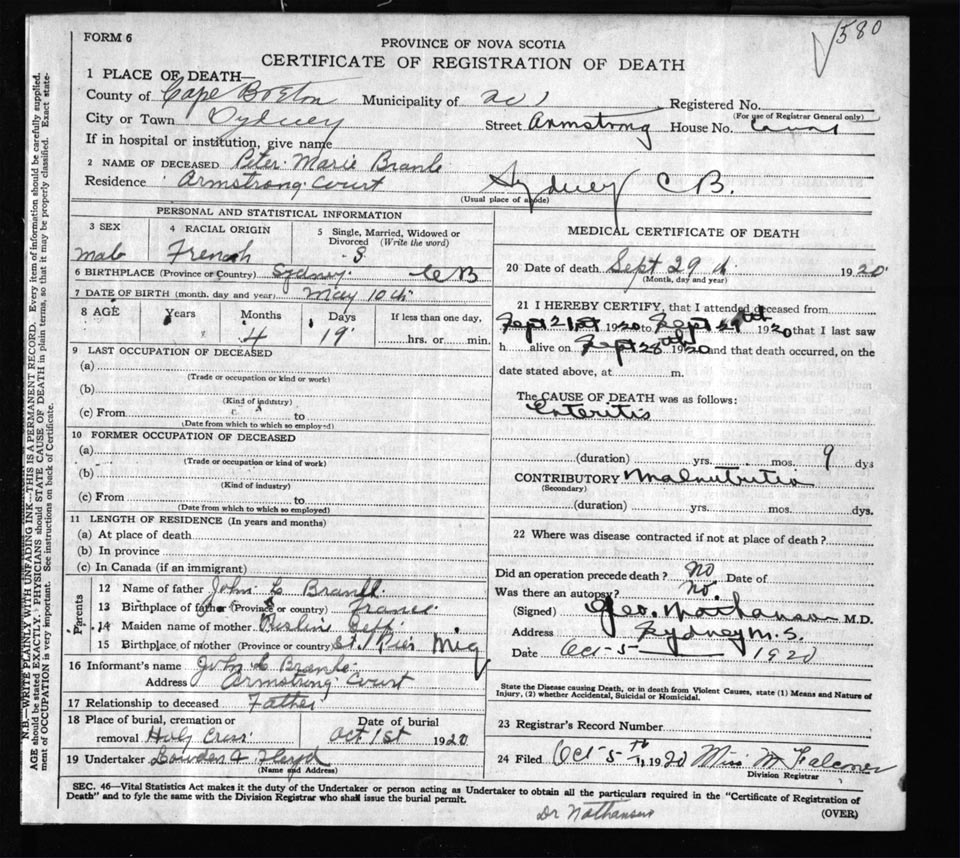 580
FORM 6
PROVINCE OF NOVA SCOTIA
CERTIFICATE OF REGISTRATION OF DEATH
1 PLACE OF DEATH—
County of Cape Breton Municipality of Registered No.
(For use of Registrar General only)
City or Town Sydney Street Armstrong House No.
If in hospital or institution, give name
2 NAME OF DECEASED Peter Marie
Residence Armstrong Court Sydney C B.
(Usual place of abode)
PERSONAL AND STATISTICAL INFORMATION
3 SEX 4 RACIAL ORIGIN 5 Single, Married, Widowed or Divorced (Write the word)
male French S
6 BIRTHPLACE (Province or Country) Sydney C B
7 DATE OF BIRTH (month, day and year) May 10th
8 AGE Years Months Days If less than one day,
4 19 hrs. or min.
9 LAST OCCUPATION OF DECEASED
(a)
(Trade or occupation or kind or work)
(b)
(Kind of industry)
(c) From to
(Date from which to which so employed)
10 FORMER OCCUPATION OF DECEASED
(a)
(Trade or occupation or kind of work)
(b)
(Kind of industry)
(c) From to
(Date from which to which so employed)
11 LENGTH OF RESIDENCE (In years and months)
(a) At place of death
(b) In province
(c) In Canada (if an immigrant)
Parents
12 Name of father John
13 Birthplace of father (Province or country) France
14 Maiden name of mother
15 Birthplace of mother (Province or country) St. Pier Miq
16 Informant's name John
Address Armstrong Court
17 Relationship to deceased Father
18 Place of burial, cremation or removal Holy Cross Date of burial Oct 1st 1920
19 Undertaker
(Name and Address)
MEDICAL CERTIFICATE OF DEATH
20 Date of death Sept 29th 1920
(Month, day and year)
21 I HEREBY CERTIFY, that I attended deceased from
Sept 21st 1920 to Sept 29th 1920 that I last saw
h alive on Sept 28th 1920 and that death occurred, on the
date stated above, at m.
The CAUSE OF DEATH was as follows:
Enteritis
(duration) yrs. mos. 9 dys
CONTRIBUTORY Malnutrition
(Secondary)
(duration) yrs. mos. dys.
22 Where was disease contracted if not at place of death?
Did an operation precede death? No Date of
Was there an autopsy? No
(Signed) Geo. M.D.
Address Sydney N. S.
Date Oct-5 1920
State the Disease causing Death, or in death from Violent Causes, state (1) Means and Nature of
Injury, (2) whether Accidental, Suicidal or Homicidal.
23 Registrar's Record Number
24 Filed Oct-5th 1920 Miss M Falconer
Division Registrar
SEC. 46—Vital Statistics Act makes it the duty of the Undertaker or person acting as Undertaker to obtain all the particulars required in the "Certificate of Registration of
Death" and to fyle the same with the Division Registrar who shall issue the burial permit.
(OVER)
Dr
N.B.—WRITE PLAINLY WITH UNFADING INK—THIS IS A PERMANENT RECORD. Every item of information should be carefully supplied.
AGE should be stated EXACTLY. PHYSICIANS should STATE CAUSE OF DEATH in plain terms, so that it may be properly classified. Exact state-
ment of OCCUPATION is very important. See instructions on back of Certificate.